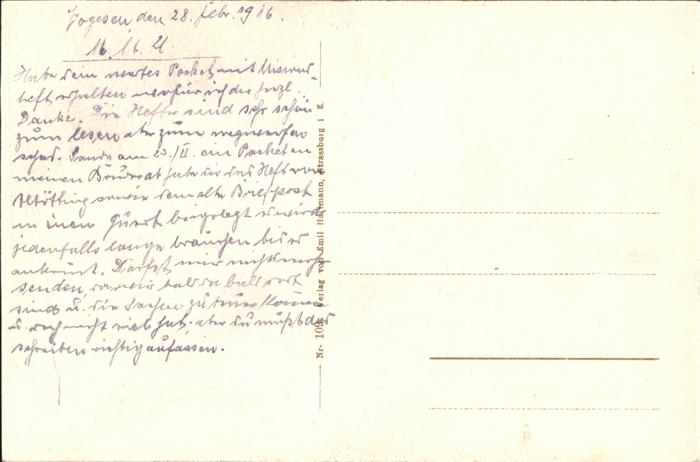 Vogesen, den 28. Febr. 1916.
Habe dein wertes Packet mit
heft erhalten wofür ich dir herzl.
Danke. Die Hefte sind sehr schön
zum lesen aber zum wegwerfen
schad. Sandte am 23./II. ein Packet an
meinen Bruder habe die das Heft von
Altötting sowie dem alte Briefpost
beigelegt wird
jedenfalls lange brauchen bis es
ankommt. Darfst mir nichts mehr
senden, da wir bald da bald dort
sind u. die Sachen zu teuer kommen
u. auch nicht viel hat, aber du mußt das
schreiben richtig auffassen.
Nr. 109 Verlag von Emil Hartmann, Strassburg i. E.